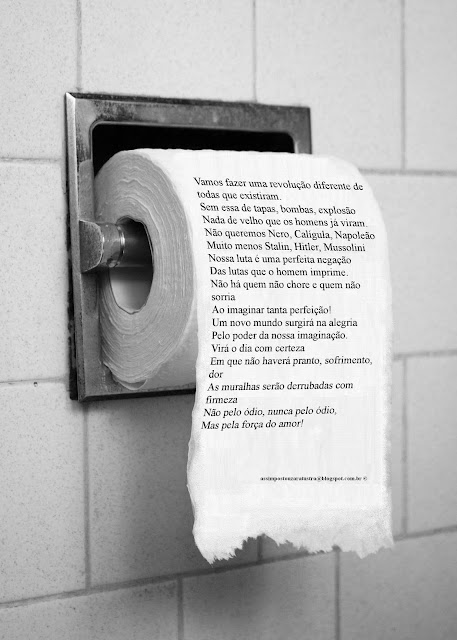 Vamos fazer uma revolução diferente de
todas que existiram.
Sem essa de tapas, bombas, explosão
Nada de velho que os homens já viram.
Não queremos Nero, Calígula, Napoleão
Muito menos Stalin, Hitler, Mussolini
Nossa luta é uma perfeita negação
Das lutas que o homem imprime.
Não há quem não chore e quem não
sorria
Ao imaginar tanta perfeição!
Um novo mundo surgirá na alegria
Pelo poder da nossa imaginação.
Virá o dia com certeza
Em que não haverá pranto, sofrimento,
dor
As muralhas serão derrubadas com
firmeza
Não pelo ódio, nunca pelo ódio,
Mas pela força do amor!